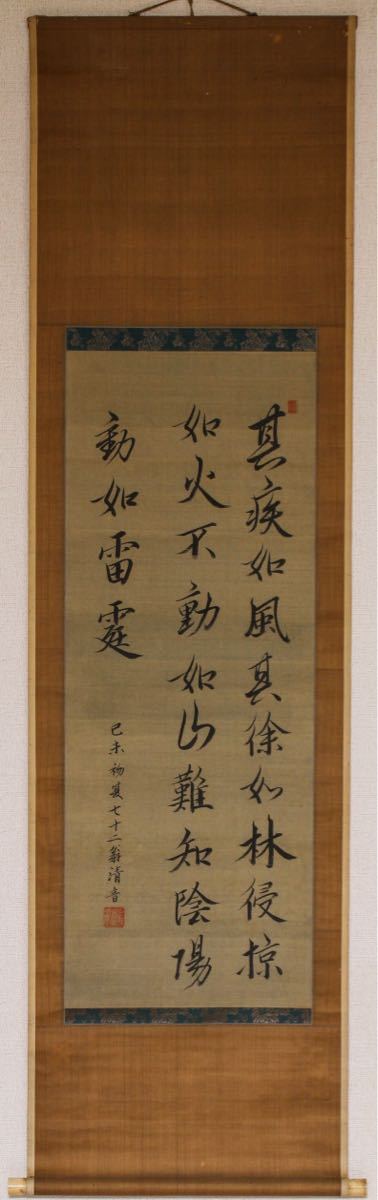 其疾如風其徐如林侵掠
如火不動如山難知陰陽
動如雷霆
己未初夏七十二翁清音